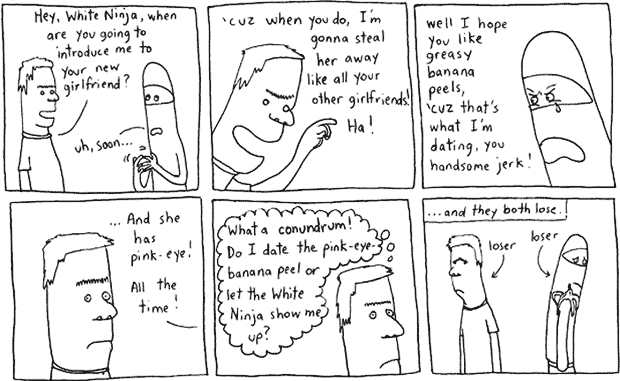 Hey, White Ninja, when
are you going to
introduce me to
your new
girlfriend?
uh, soon...
'cuz when you do, I'm
gonna steal
her away
like all your
other girlfriends!
Ha!
well I hope
you like
greasy
banana
peels,
'cuz that's
what I'm
dating, you
handsome jerk!
... And she
has
pink-eye!
All the
time!
What a conundrum!
Do I date the pink-eye-
banana peel or
let the White
Ninja show me
up?
...and they both lose.
loser
loser